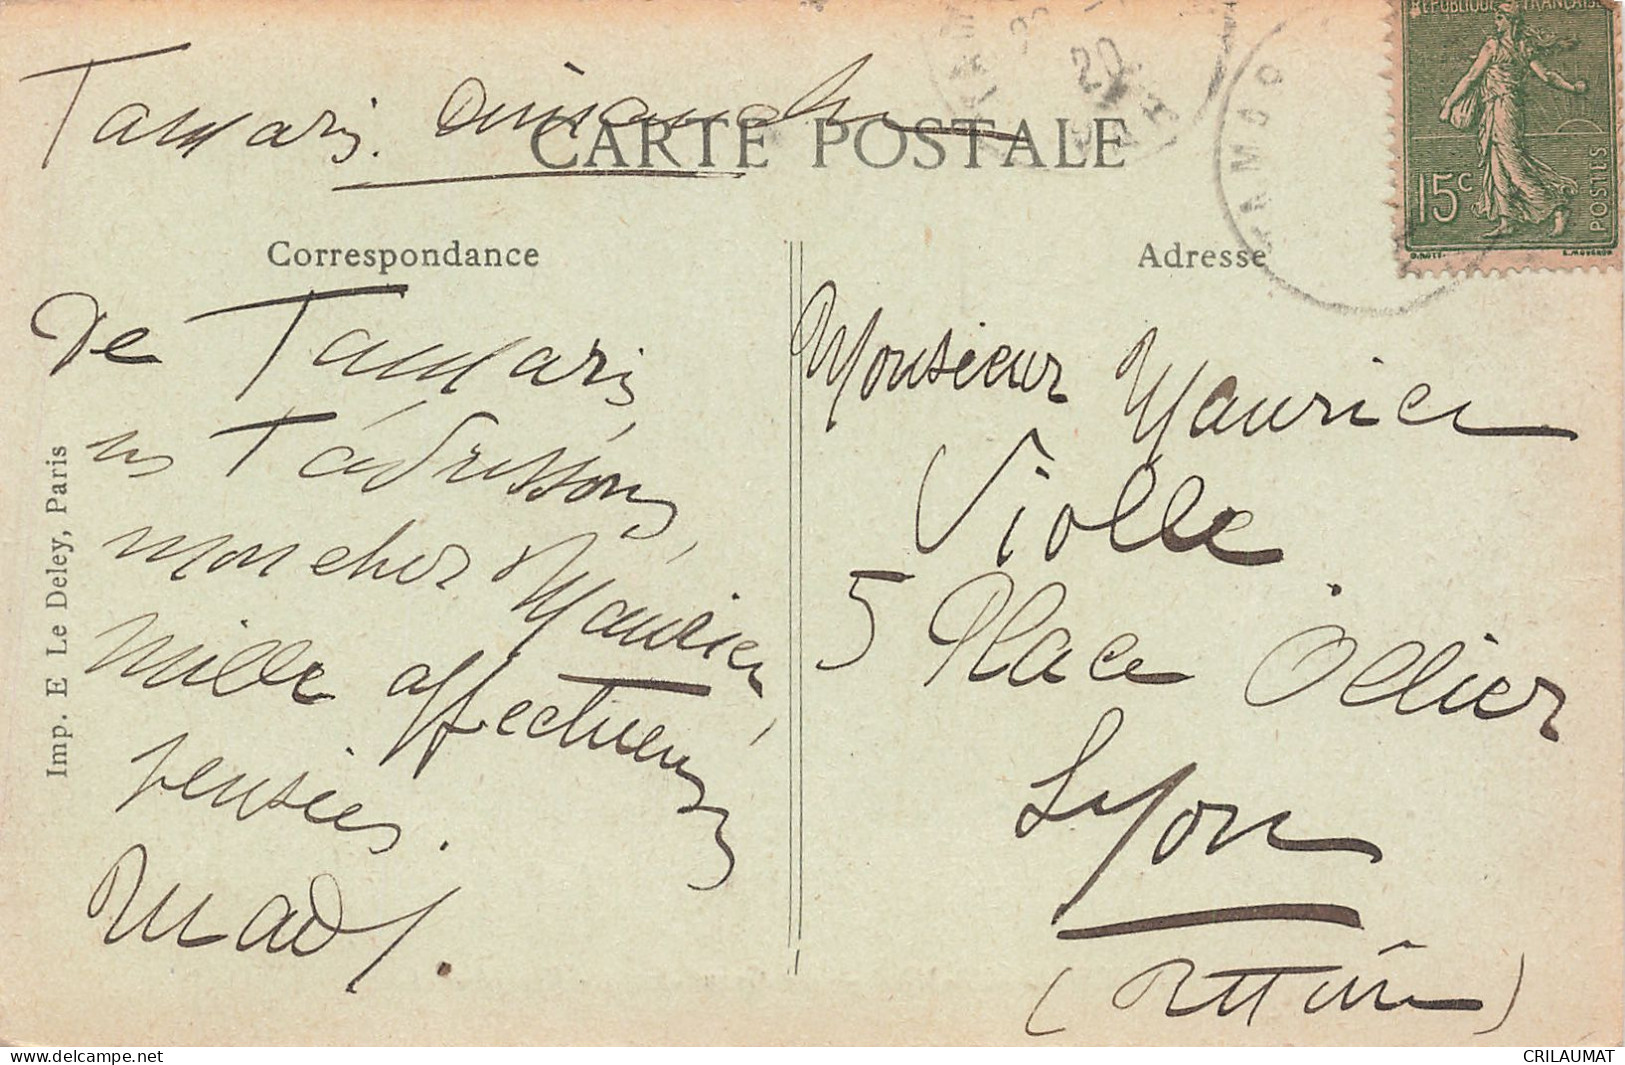 Tamaris. Dimanche
CARTE POSTALE
RÉPUBLIQUE FRANÇAISE
15c
POSTES
Correspondance
Adresse
De Tamaris,
ns t'adressons,
mon cher Maurice,
mille affectueuses
pensées.
Mady.
Monsieur Maurice
Violle
5 Place Ollier
Lyon
(Rhône)
Imp. E Le Deley, Paris
CRILAUMAT